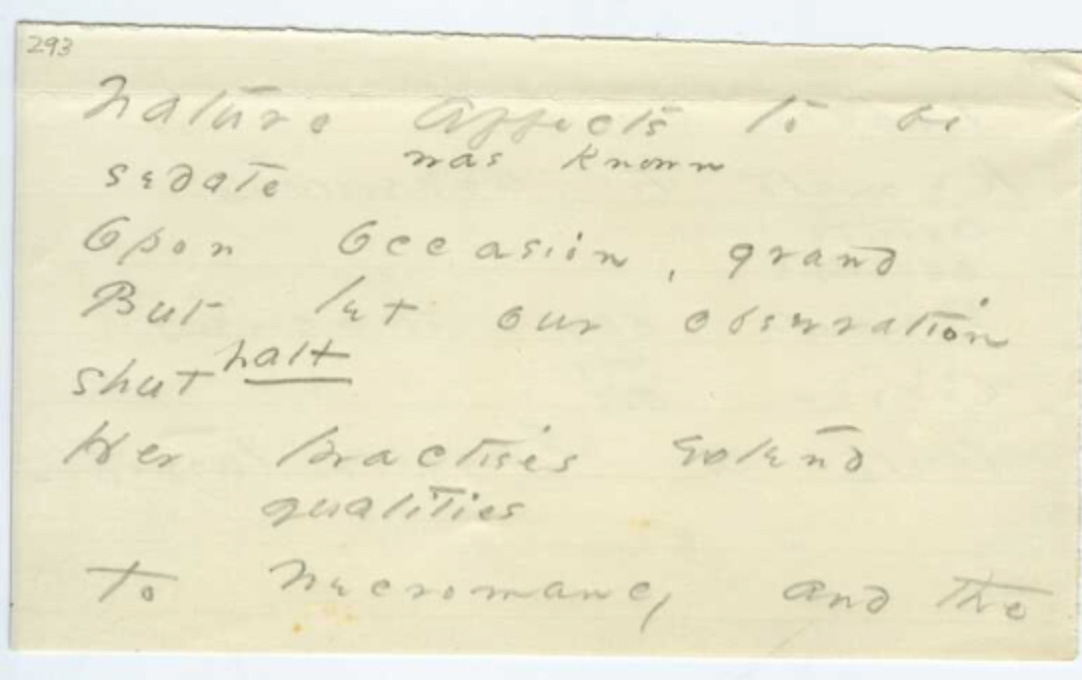 293
Nature affects to be
was known
sedate
Opon Occasion, grand
But let our observation
halt
shut
Her practises extend
qualities
To Necromancy and the